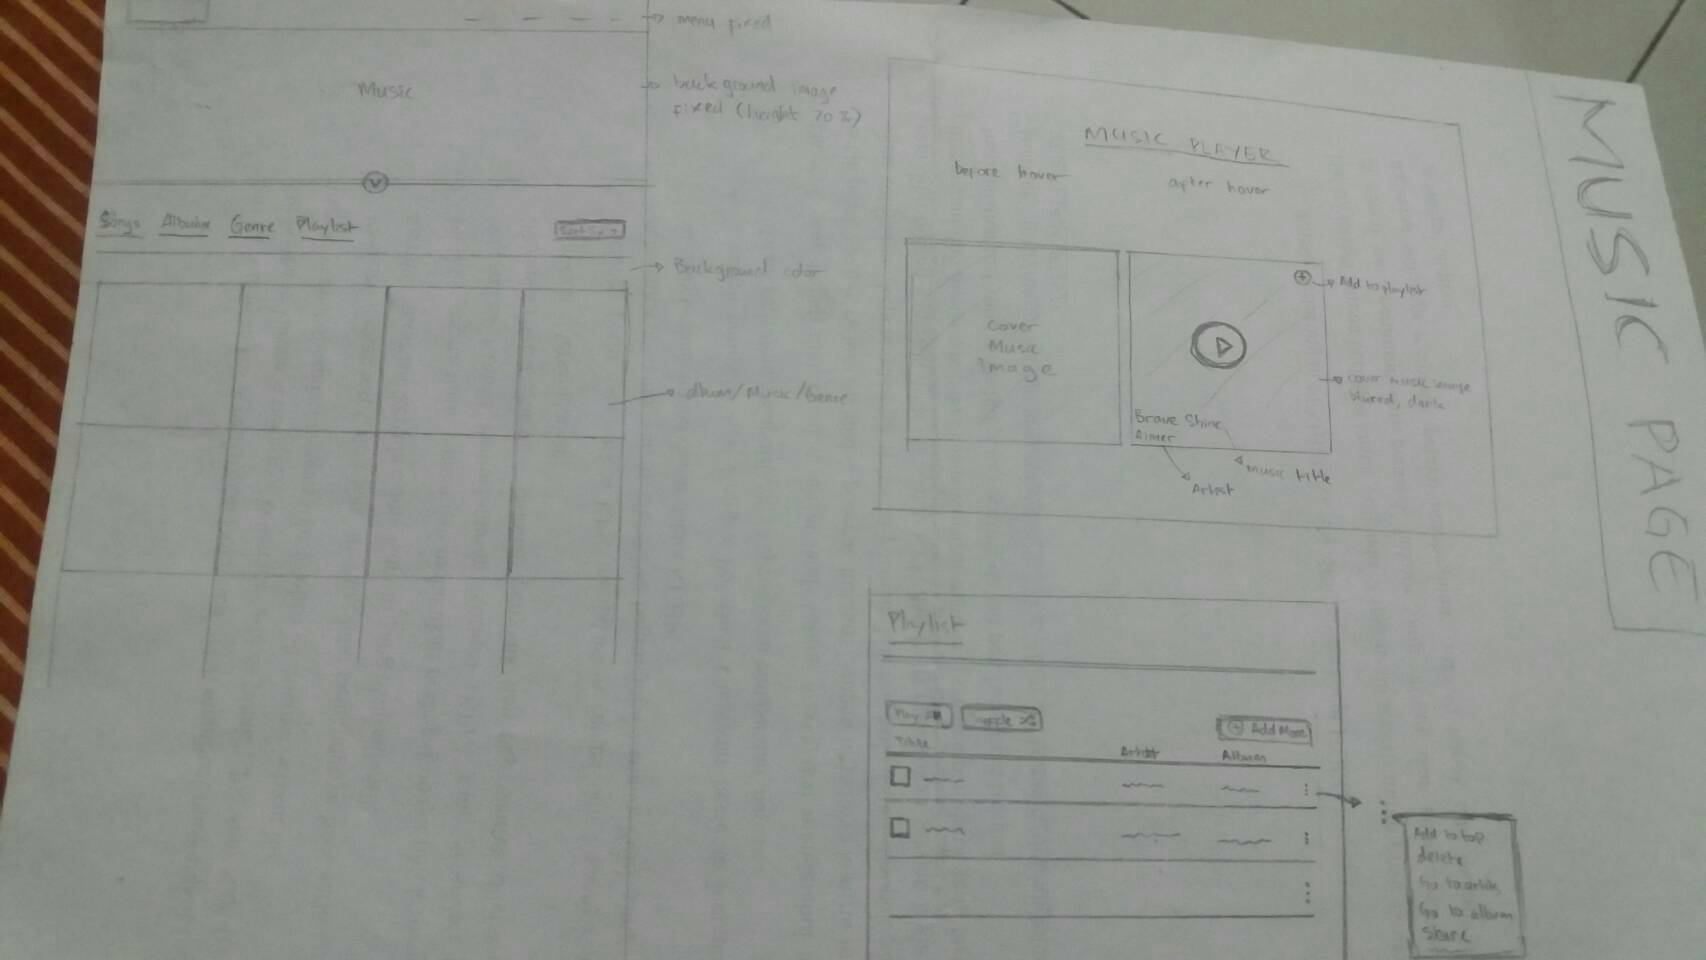 MUSIC PAGE
menu fixed
Music
background image
fixed (height 70%)
Songs Albums Genre Playlist
Background color
album/Music/Genre
MUSIC PLAYER
before hover
after hover
Cover
Music
Image
Add to playlist
cover music image
blured, dark
Brave Shine
Aimer
Music title
Artist
Playlist
Play
Add More
Title Artist Album
Add to top
delete
Go to artist
Go to album
Share